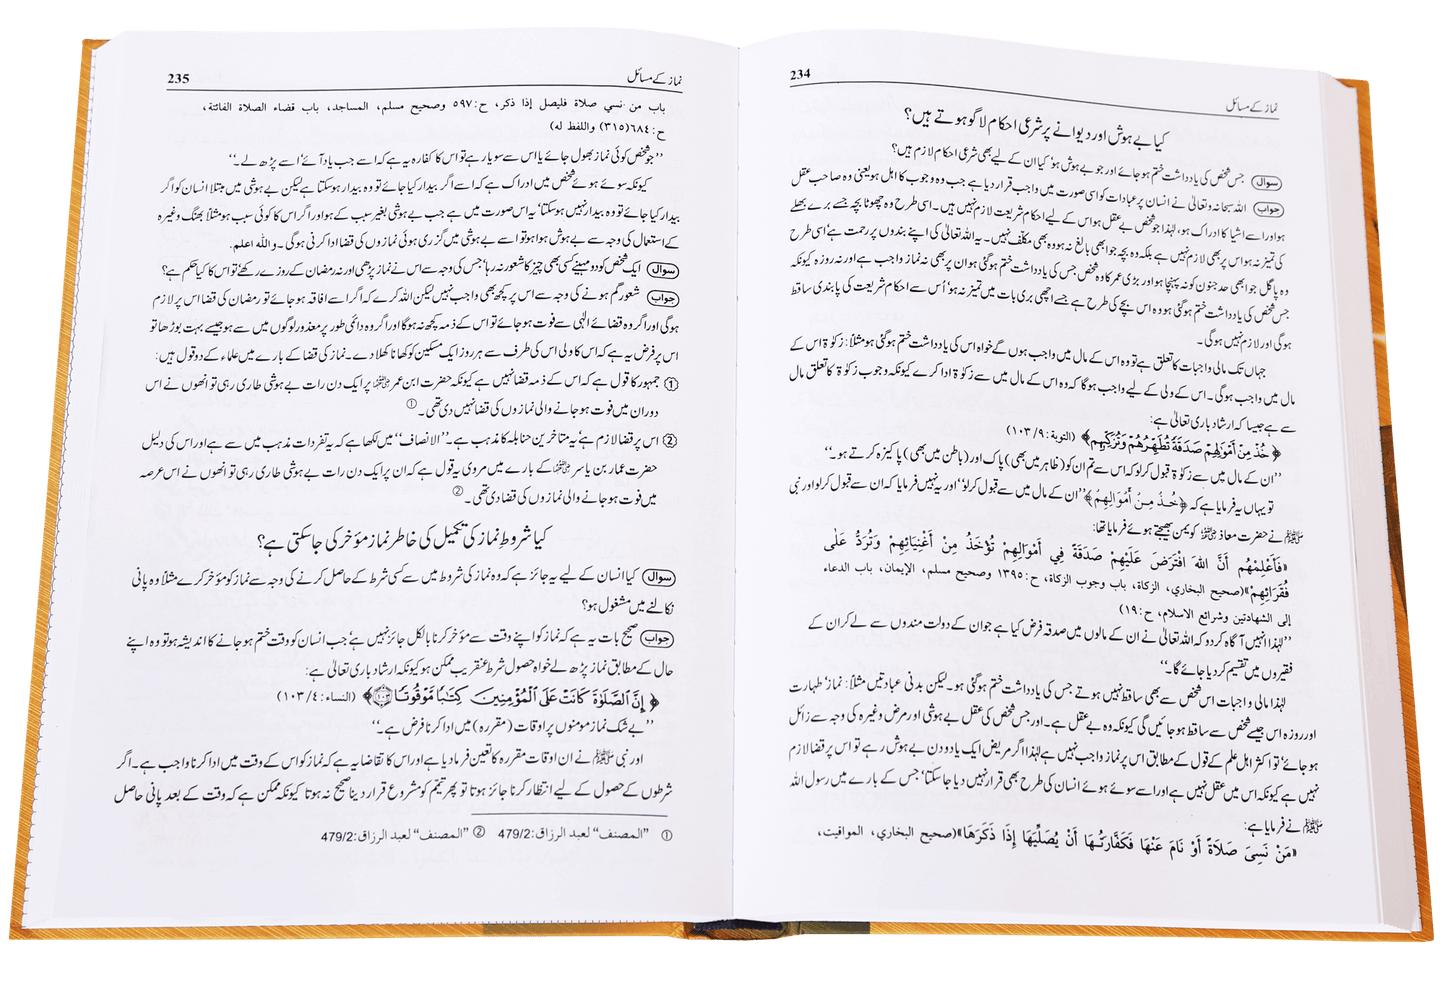 234
نماز کے مسائل
کیا بے ہوش اور دیوانے پر شرعی احکام لاگو ہوتے ہیں؟
سوال جس شخص کی یادداشت ختم ہو جائے اور جو بے ہوش ہو، کیا ان کے لیے بھی شرعی احکام لازم ہیں؟
جواب اللہ سبحانہ وتعالیٰ نے انسان پر عبادات کو اسی صورت میں واجب قرار دیا ہے جب وہ وجوب کا اہل ہو یعنی وہ صاحب عقل
ہو اور اسے اشیا کا ادراک ہو، لہٰذا جو شخص بے عقل ہو اس کے لیے احکام شریعت لازم نہیں ہیں۔ اسی طرح وہ چھوٹا بچہ جسے برے بھلے
کی تمیز نہ ہو اس پر بھی لازم نہیں ہے بلکہ وہ بچہ جو ابھی بالغ نہ ہو وہ بھی مکلّف نہیں۔ یہ اللہ تعالیٰ کی اپنے بندوں پر رحمت ہے، اسی طرح
وہ پاگل جو ابھی حد جنون کو نہ پہنچا ہو اور بڑی عمر کا وہ شخص جس کی یادداشت ختم ہو گئی ہو ان پر بھی نہ نماز واجب ہے اور نہ روزہ کیونکہ
جس شخص کی یادداشت ختم ہو گئی ہو وہ اس بچے کی طرح ہے جسے اچھی بری بات میں تمیز نہ ہو، اُس سے احکام شریعت کی پابندی ساقط
ہوگی اور لازم نہیں ہوگی۔
جہاں تک مالی واجبات کا تعلق ہے تو وہ اس کے مال میں واجب ہوں گے خواہ اس کی یادداشت ختم ہو گئی ہو مثلاً: زکوٰۃ اس کے
مال میں واجب ہوگی۔ اس کے ولی کے لیے واجب ہوگا کہ وہ اس کے مال میں سے زکوٰۃ ادا کرے کیونکہ وجوب زکوٰۃ کا تعلق مال
سے ہے جیسا کہ ارشاد باری تعالیٰ ہے:
﴿خُذْ مِنْ أَمْوَٰلِهِمْ صَدَقَةً تُطَهِّرُهُمْ وَتُزَكِّيهِم﴾ (التوبة: ۱۰۳/۹)
’’ان کے مال میں سے زکوٰۃ قبول کر لو کہ اس سے تم ان کو (ظاہر میں بھی) پاک اور (باطن میں بھی) پاکیزہ کرتے ہو۔‘‘
تو یہاں یہ فرمایا ہے کہ ﴿خُذْ مِنْ أَمْوَالِهِمْ﴾ ’’ان کے مال میں سے قبول کر لو‘‘ اور یہ نہیں فرمایا کہ ان سے قبول کر لو اور نبی
ﷺ نے حضرت معاذ کو یمن بھیجتے ہوئے فرمایا تھا:
«فَأَعْلِمْهُم أَنَّ اللهَ افْتَرَضَ عَلَيْهِمْ صَدَقَةً فِي أَمْوَالِهِمْ تُؤْخَذُ مِنْ أَغْنِيَائِهِمْ وَتُرَدُّ عَلٰى
فُقَرَائِهِمْ»(صحيح البخاري، الزكاة، باب وجوب الزكاة، ح: ۱۳۹۵ وصحيح مسلم، الإيمان، باب الدعاء
إلى الشهادتين وشرائع الاسلام، ح: ۱۹)
’’لہٰذا انہیں آگاہ کر دو کہ اللہ تعالیٰ نے ان کے مالوں میں صدقہ فرض کیا ہے جو ان کے دولت مندوں سے لے کر ان کے
فقیروں میں تقسیم کر دیا جائے گا۔‘‘
لہٰذا مالی واجبات اس شخص سے بھی ساقط نہیں ہوتے جس کی یادداشت ختم ہو گئی ہو۔ لیکن بدنی عبادتیں مثلاً: نماز، طہارت
اور روزہ اس جیسے شخص سے ساقط ہو جائیں گی کیونکہ وہ بے عقل ہے۔ اور جس شخص کی عقل بے ہوشی اور مرض وغیرہ کی وجہ سے زائل
ہو جائے، تو اکثر اہل علم کے قول کے مطابق اس پر نماز واجب نہیں ہے لہٰذا اگر مریض ایک یا دو دن بے ہوش رہے تو اس پر قضا لازم
نہیں ہے کیونکہ اس میں عقل نہیں ہے اور اسے سوئے ہوئے انسان کی طرح بھی قرار نہیں دیا جا سکتا، جس کے بارے میں رسول اللہ
ﷺ نے فرمایا ہے:
«مَنْ نَسِيَ صَلَاةً أَوْ نَامَ عَنْهَا فَكَفَّارَتُهَا أَنْ يُصَلِّيَهَا إِذَا ذَكَرَهَا»(صحيح البخاري، المواقيت،
235
نماز کے مسائل
باب من نسي صلاة فليصل إذا ذكر، ح: ۵۹۷ وصحيح مسلم، المساجد، باب قضاء الصلاة الفائتة،
ح: ۶۸۴(۳۱۵) واللفظ له)
’’جو شخص کوئی نماز بھول جائے یا اس سے سویا رہے تو اس کا کفارہ یہ ہے کہ اسے جب یاد آئے، اسے پڑھ لے۔‘‘
کیونکہ سوئے ہوئے شخص میں ادراک ہے کہ اسے اگر بیدار کیا جائے تو وہ بیدار ہو سکتا ہے لیکن بے ہوشی میں مبتلا انسان کو اگر
بیدار کیا جائے تو وہ بیدار نہیں ہو سکتا، یہ اس صورت میں ہے جب بے ہوشی بغیر سبب کے ہو اور اگر اس کا کوئی سبب ہو مثلاً بھنگ وغیرہ
کے استعمال کی وجہ سے بے ہوش ہوا ہو تو اسے بے ہوشی میں گزری ہوئی نمازوں کی قضا ادا کرنی ہوگی۔ واللہ اعلم.
سوال ایک شخص کو دو مہینے کسی بھی چیز کا شعور نہ رہا، جس کی وجہ سے اس نے نماز پڑھی اور نہ رمضان کے روزے رکھے، تو اس کا کیا حکم ہے؟
جواب شعور گم ہونے کی وجہ سے اس پر کچھ بھی واجب نہیں لیکن اللہ کرے کہ اگر اسے افاقہ ہو جائے تو رمضان کی قضا اس پر لازم
ہوگی اور اگر وہ قضائے الٰہی سے فوت ہو جائے تو اس کے ذمہ کچھ نہ ہوگا اور اگر وہ دائمی طور پر معذور لوگوں میں سے ہو جیسے بہت بوڑھا تو
اس پر فرض یہ ہے کہ اس کا ولی اس کی طرف سے ہر روز ایک مسکین کو کھانا کھلا دے۔ نماز کی قضا کے بارے میں علماء کے دو قول ہیں:
① جمہور کا قول ہے کہ اس کے ذمہ قضا نہیں ہے کیونکہ حضرت ابن عمر پر ایک دن رات بے ہوشی طاری رہی تو انھوں نے اس
دوران میں فوت ہو جانے والی نمازوں کی قضا نہیں دی تھی۔①
② اس پر قضا لازم ہے، یہ متاخرین حنابلہ کا مذہب ہے۔ ’’الانصاف‘‘ میں لکھا ہے کہ یہ تفردات مذہب میں سے ہے اور اس کی دلیل
حضرت عمار بن یاسر کے بارے میں مروی یہ قول ہے کہ ان پر ایک دن رات بے ہوشی طاری رہی تو انھوں نے اس عرصہ
میں فوت ہو جانے والی نمازوں کی قضا دی تھی۔②
کیا شروطِ نماز کی تکمیل کی خاطر نماز مؤخر کی جا سکتی ہے؟
سوال کیا انسان کے لیے یہ جائز ہے کہ وہ نماز کی شروط میں سے کسی شرط کے حاصل کرنے کی وجہ سے نماز کو مؤخر کرے مثلاً وہ پانی
نکالنے میں مشغول ہو؟
جواب صحیح بات یہ ہے کہ نماز کو اپنے وقت سے مؤخر کرنا بالکل جائز نہیں ہے، جب انسان کو وقت ختم ہو جانے کا اندیشہ ہو تو وہ اپنے
حال کے مطابق نماز پڑھ لے خواہ حصول شرط عنقریب ممکن ہو کیونکہ ارشاد باری تعالیٰ ہے:
﴿إِنَّ ٱلصَّلَوٰةَ كَانَتْ عَلَى ٱلْمُؤْمِنِينَ كِتَٰبًا مَّوْقُوتًا ۝۱۰۳﴾ (النساء: ۱۰۳/۴)
’’بے شک نماز مومنوں پر اوقات (مقررہ) میں ادا کرنا فرض ہے۔‘‘
اور نبی ﷺ نے ان اوقات مقررہ کا تعین فرما دیا ہے اور اس کا تقاضا یہ ہے کہ نماز کو اس کے وقت میں ادا کرنا واجب ہے۔ اگر
شرطوں کے حصول کے لیے انتظار کرنا جائز ہوتا تو پھر تیمّم کو مشروع قرار دینا صحیح نہ ہوتا کیونکہ ممکن ہے کہ وقت کے بعد پانی حاصل
① "المصنف" لعبد الرزاق: 479/2 ② "المصنف" لعبد الرزاق: 479/2